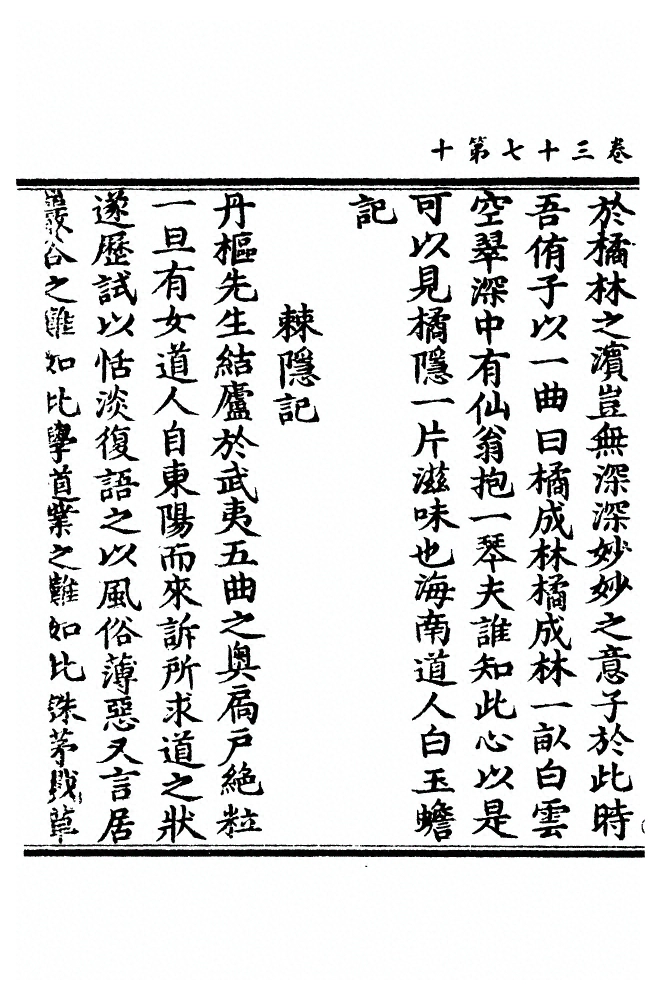 卷三十七第十
於橘林之濵豈無深深妙妙之意子於此時
吾侑子以一曲曰橘成林橘成林一畝白雲
空翠深中有仙翁抱一琴夫誰知此心以是
可以見橘隱一片滋味也海南道人白玉蟾
記
棘隱記
丹樞先生結廬於武夷五曲之奥扃戸絶粒
一旦有女道人自東陽而來訴所求道之狀
遂歷試以恬淡復語之以風俗薄惡又言居
巖谷之難如此學道業之難如此誅茅剗草